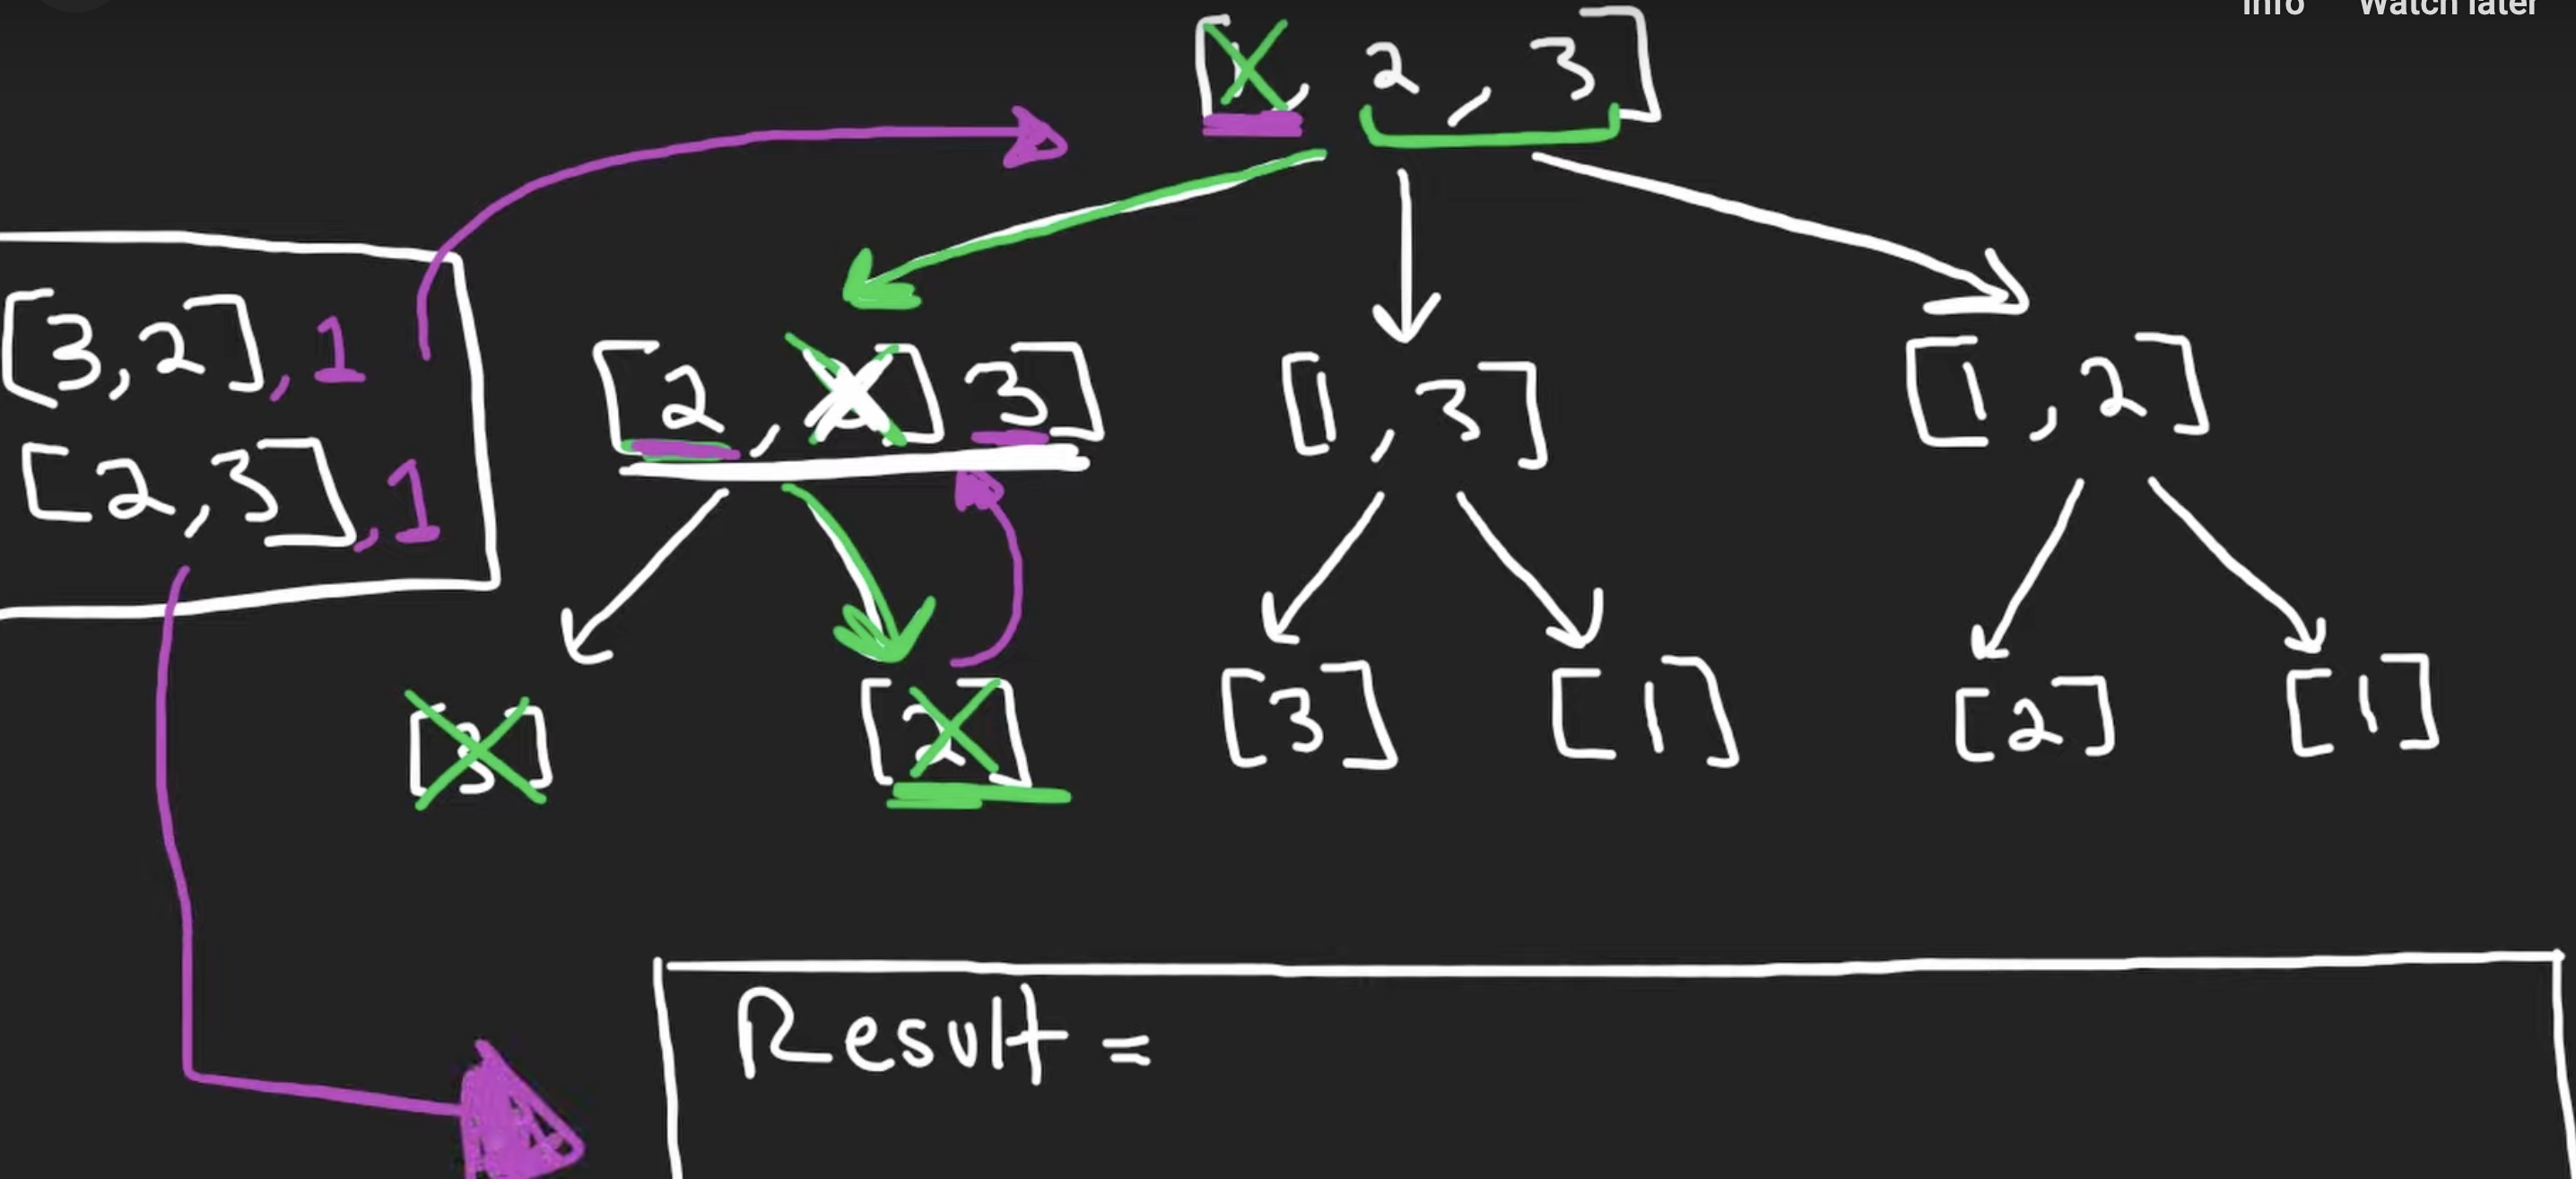 Info Watch later
[1, 2, 3]
[3,2],1
[2,3],1
[2, 3]
[1, 3]
[1, 2]
[3]
[2]
[3]
[1]
[2]
[1]
Result =